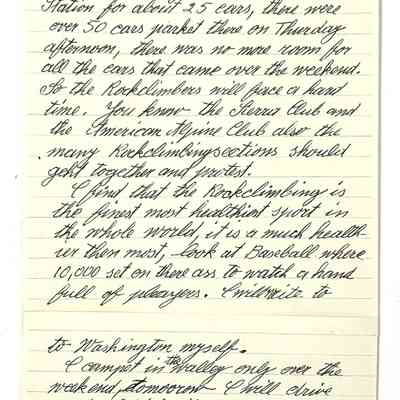 Station for about 25 cars, there were
over 50 cars parket there on Thurday
afternoon, there was no more room for
all the cars that came over the weekend.
So the Rockclimbers will face a hard
time. You know the Sierra Club and
the American Alpine Club also the
many Rockclimbingsections should
gett together and protest.
I find that the Rockclimbing is
the finest most healthiest sport in
the whole world, it is a much health-
ier then most, look at Baseball where
10,000 set on there ass to watch a hand
full of pleayers. I wilwrite to
to Washington myself.
I campet in the Valley only over the
weekend, tomoorow I will drive